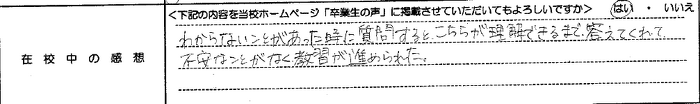 <下記の内容を当校ホームページ「卒業生の声」に掲載させていただいてもよろしいですか> はい・いいえ
在校中の感想
わからないことがあった時に質問すると、こちらが理解できるまで答えてくれて
不安なことがなく教習が進められた。